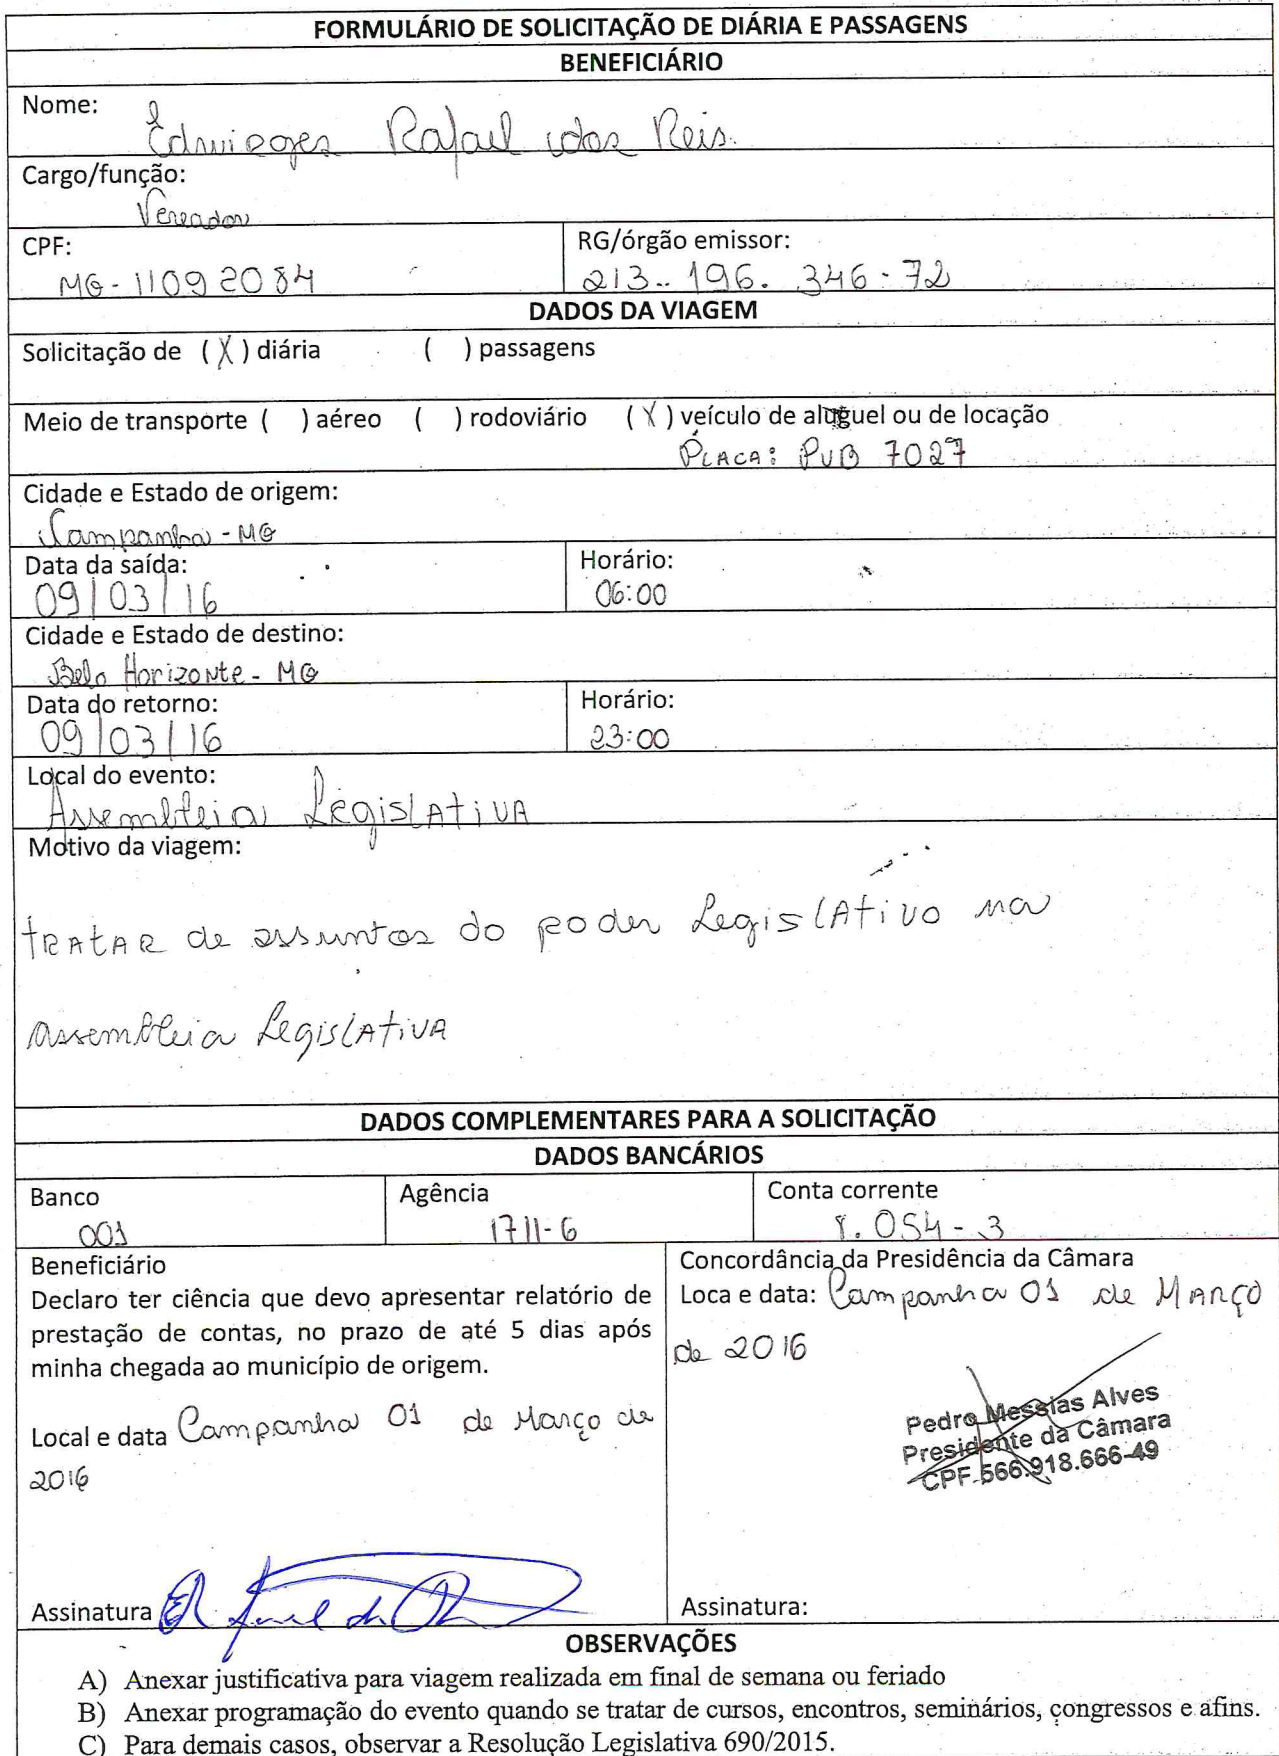 FORMULÁRIO DE SOLICITAÇÃO DE DIÁRIA E PASSAGENS
BENEFICIÁRIO
Nome:
Edwiges Rafael dos Reis.
Cargo/função:
Vereador
CPF:
MG-11092084
RG/órgão emissor:
213.196.346-72
DADOS DA VIAGEM
Solicitação de (X) diária ( ) passagens
Meio de transporte ( ) aéreo ( ) rodoviário (X) veículo de aluguel ou de locação
PLACA: PUB 7027
Cidade e Estado de origem:
Campanha - MG
Data da saída:
09/03/16
Horário:
06:00
Cidade e Estado de destino:
Belo Horizonte - MG
Data do retorno:
09/03/16
Horário:
23:00
Local do evento:
Assembleia Legislativa
Motivo da viagem:
tratar de assuntos do poder Legislativo na
assembleia Legislativa
DADOS COMPLEMENTARES PARA A SOLICITAÇÃO
DADOS BANCÁRIOS
Banco
001
Agência
1711-6
Conta corrente
8.054-3
Beneficiário
Declaro ter ciência que devo apresentar relatório de
prestação de contas, no prazo de até 5 dias após
minha chegada ao município de origem.
Local e data Campanha 01 de Março de
2016
Assinatura
Concordância da Presidência da Câmara
Loca e data: Campanha 01 de Março
de 2016
Pedro Messias Alves
Presidente da Câmara
CPF 566.918.666-49
Assinatura:
OBSERVAÇÕES
A) Anexar justificativa para viagem realizada em final de semana ou feriado
B) Anexar programação do evento quando se tratar de cursos, encontros, seminários, congressos e afins.
C) Para demais casos, observar a Resolução Legislativa 690/2015.